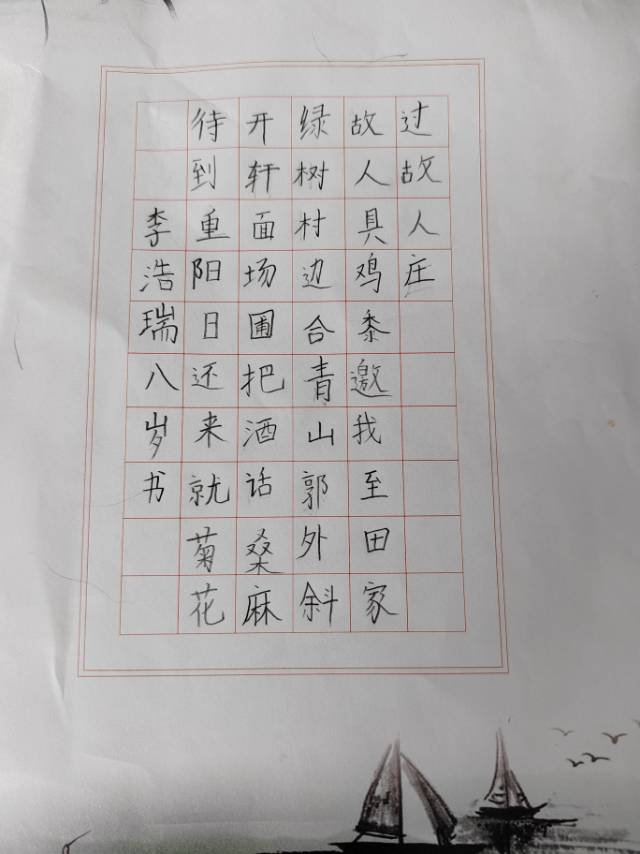 过故人庄
故人具鸡黍邀我至田家
绿树村边合青山郭外斜
开轩面场圃把酒话桑麻
待到重阳日还来就菊花
李浩瑞八岁书